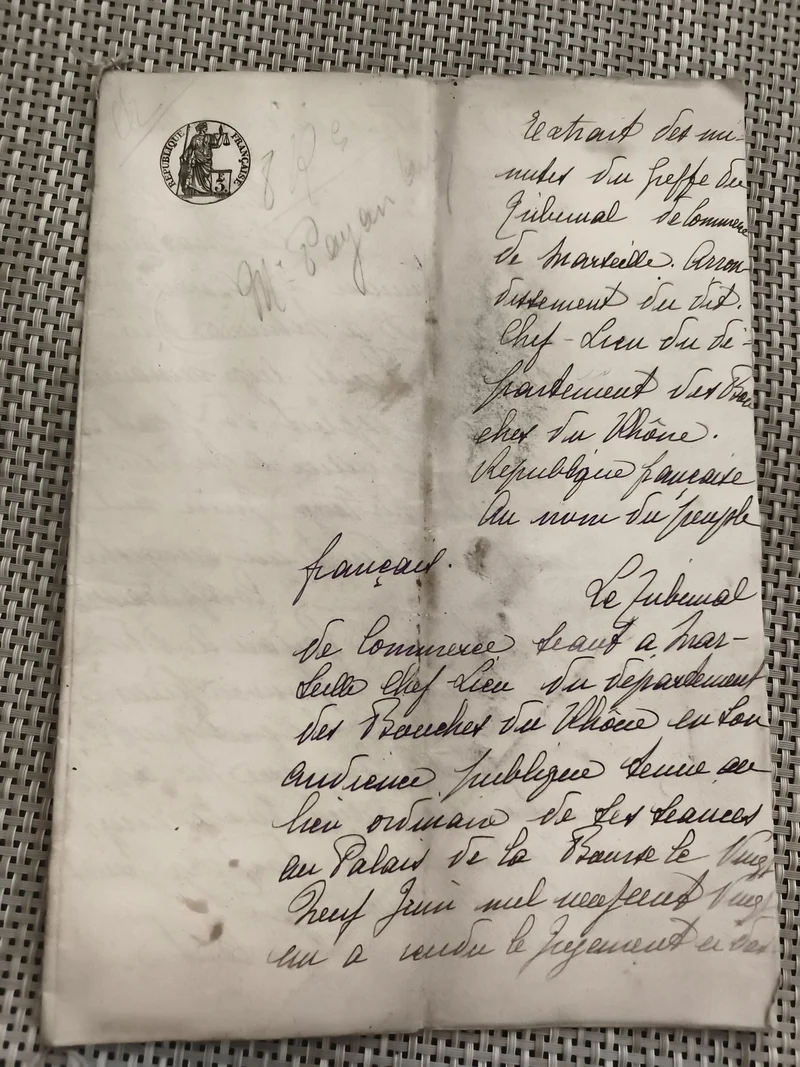 RÉPUBLIQUE FRANÇAISE
Me Payan
Extrait des mi-
nutes du Greffe du
Tribunal de Commerce
de Marseille. Arron-
dissement du dit.
Chef-Lieu du dé-
partement des Bou
ches du Rhône.
République française
Au nom du peuple
français.
Le Tribunal
de Commerce séant a Mar-
seille Chef-Lieu du département
des Bouches du Rhône en son
audience publique tenue au
lieu ordinaire de ses séances
au Palais de la Bourse le Vingt
Neuf Juin mil neuf cent Vingt
un a rendu le Jugement ci des